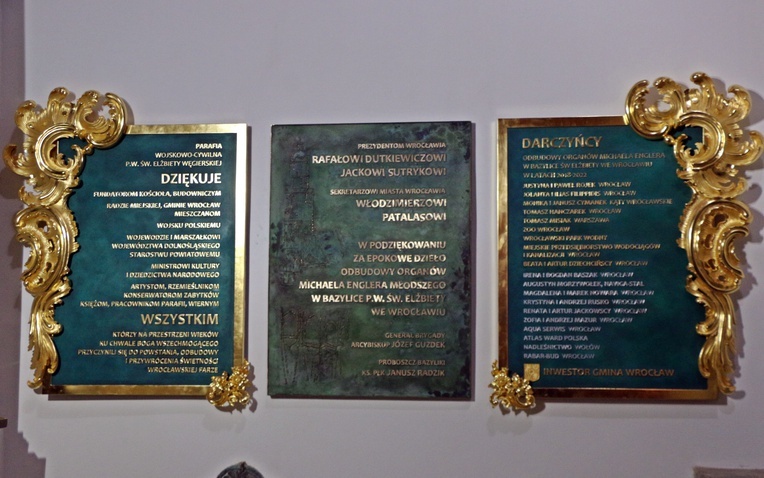 PARAFIA
WOJSKOWO-CYWILNA
P.W. ŚW. ELŻBIETY WĘGIERSKIEJ
DZIĘKUJE
FUNDATOROM KOŚCIOŁA, BUDOWNICZYM
RADZIE MIEJSKIEJ, GMINIE WROCŁAW
MIESZCZANOM
WOJSKU POLSKIEMU
WOJEWODZIE I MARSZAŁKOWI
WOJEWÓDZTWA DOLNOŚLĄSKIEGO
STAROSTWU POWIATOWEMU
MINISTROWI KULTURY
I DZIEDZICTWA NARODOWEGO
ARTYSTOM, RZEMIEŚLNIKOM
KONSERWATOROM ZABYTKÓW
KSIĘŻOM, PRACOWNIKOM PARAFII, WIERNYM
WSZYSTKIM
KTÓRZY NA PRZESTRZENI WIEKÓW
KU CHWALE BOGA WSZECHMOGĄCEGO
PRZYCZYNILI SIĘ DO POWSTANIA, ODBUDOWY
I PRZYWRÓCENIA ŚWIETNOŚCI
WROCŁAWSKIEJ FARZE
PREZYDENTOM WROCŁAWIA
RAFAŁOWI DUTKIEWICZOWI
JACKOWI SUTRYKOWI
SEKRETARZOWI MIASTA WROCŁAWIA
WŁODZIMIERZOWI
PATALASOWI
W PODZIĘKOWANIU
ZA EPOKOWE DZIEŁO
ODBUDOWY ORGANÓW
MICHAELA ENGLERA MŁODSZEGO
W BAZYLICE P.W. ŚW. ELŻBIETY
WE WROCŁAWIU
GENERAŁ BRYGADY
ARCYBISKUP JÓZEF GUZDEK
PROBOSZCZ BAZYLIKI
KS. PŁK JANUSZ RADZIK
DARCZYŃCY
ODBUDOWY ORGANÓW MICHAELA ENGLERA
W BAZYLICE ŚW. ELŻBIETY WE WROCŁAWIU
W LATACH 2018-2022
JUSTYNA I PAWEŁ ROJEK WROCŁAW
JOLANTA I ILIAS FILIPPIDIS WROCŁAW
MONIKA I JANUSZ CYMANEK KĄTY WROCŁAWSKIE
TOMASZ HANCZAREK WROCŁAW
TOMASZ MISIAK WARSZAWA
ZOO WROCŁAW
WROCŁAWSKI PARK WODNY
MIEJSKIE PRZEDSIĘBIORSTWO WODOCIĄGÓW
I KANALIZACJI WROCŁAW
BEATA I ARTUR DZIECHCIŃSCY WROCŁAW
IRENA I BOGDAN BASZAK WROCŁAW
AUGUSTYN MORZYWOŁEK, HAWICA-STAL
MAGDALENA I MAREK NOWARA WROCŁAW
KRYSTYNA I ANDRZEJ RUSKO WROCŁAW
RENATA I ARTUR JACKOWSCY WROCŁAW
ZOFIA I ANDRZEJ MAZUR WROCŁAW
AQUA SERWIS WROCŁAW
ATLAS WARD POLSKA
NADLEŚNICTWO WOŁÓW
RABAR-BUD WROCŁAW
INWESTOR GMINA WROCŁAW